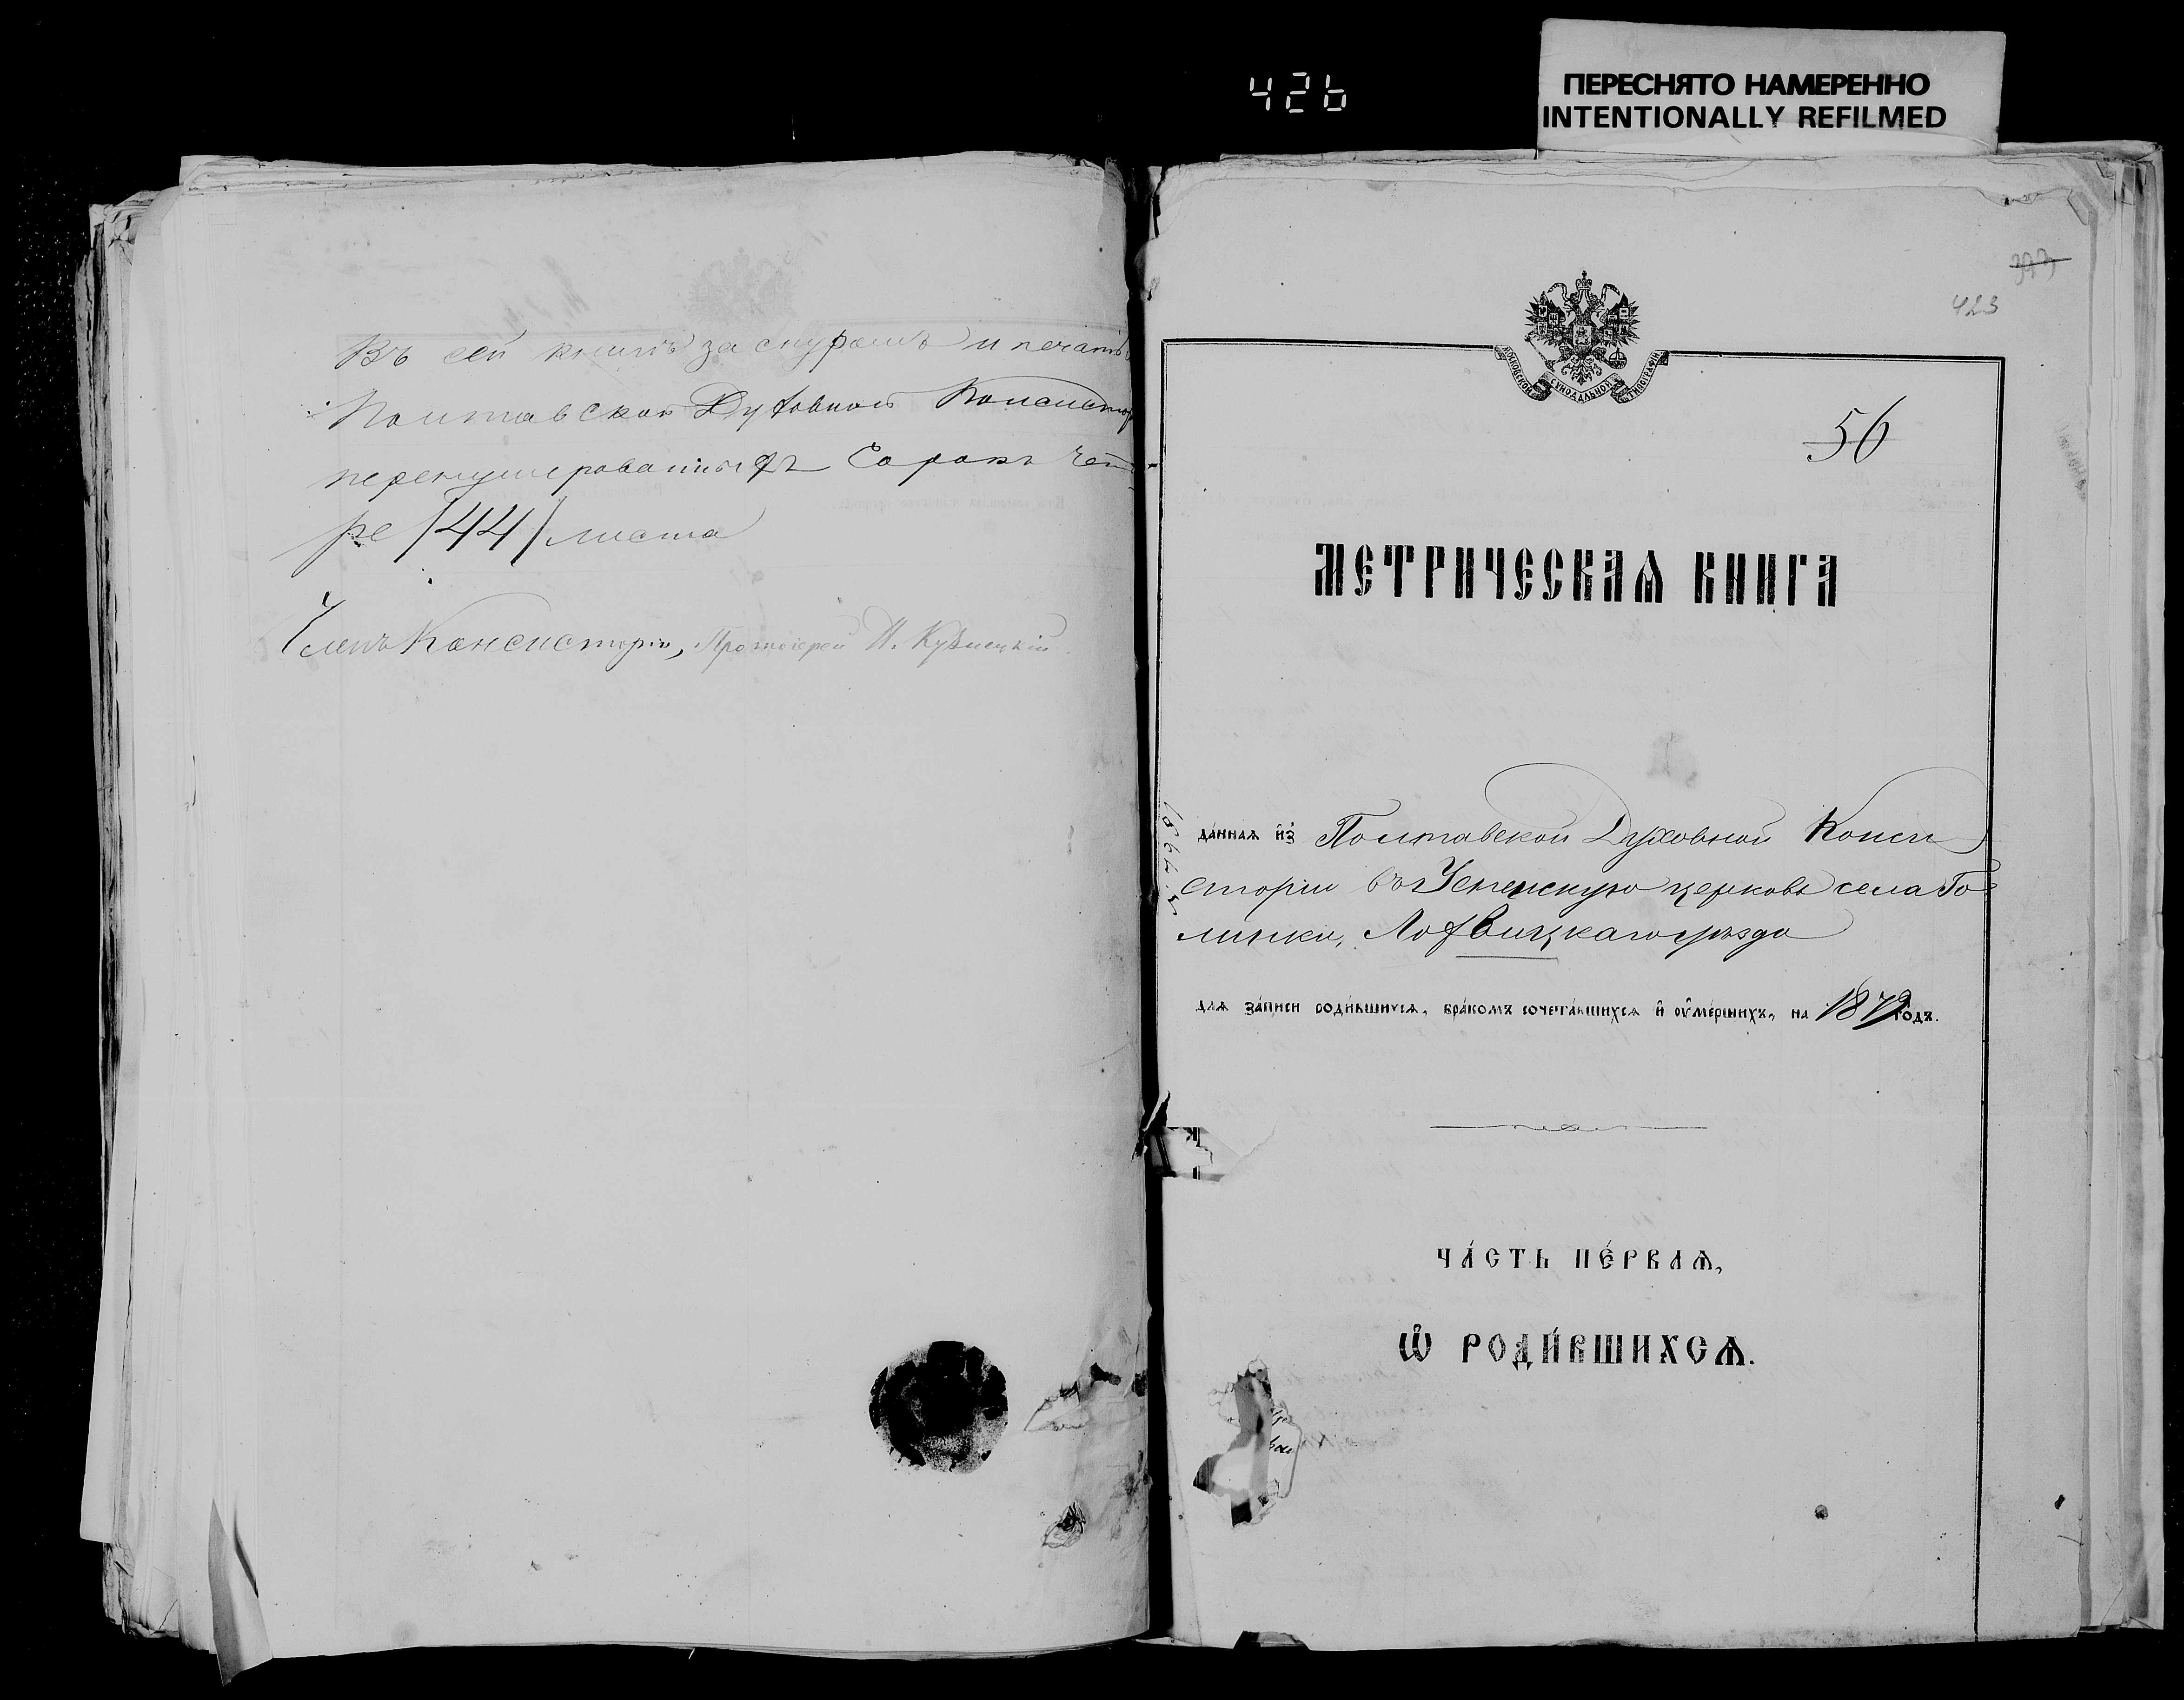 426
ПЕРЕСНЯТО НАМЕРЕННО
INTENTIONALLY REFILMED
Въ сей книгѣ за снуромъ и печатью
Полтавской Духовной Консистор
перенумерованныхъ Сорокъ Четы-
ре /44/ листа
Членъ Консисторіи, Протоіерей Н. Кузнецкій.
393
423
МОСКОВСКОЙ СѴНОДАЛЬНОЙ ТИПОГРАФІИ
56
МЕТРИЧЕСКАѦ КНИГА
да́ннаѧ и҆з̾ Полтавской Духовной Конси
сторіи въ Успенскую церковь села Го-
линки, Лохвицкаго уѣзда
длѧ за́писи роди́вшихсѧ, бра́комъ сочета́вшихсѧ и҆ ᲂу҆ме́ршихъ, на 1879 годъ.
ЧА́СТЬ ПЕ́РВАѦ,
Ѽ РОДИ́ВШИХСѦ.